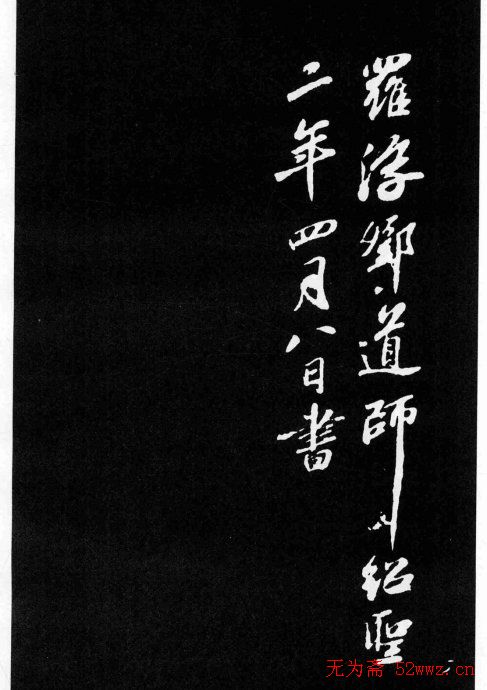 羅浮鄧道師紹聖
二年四月八日書
无为斋 52wwz.cn